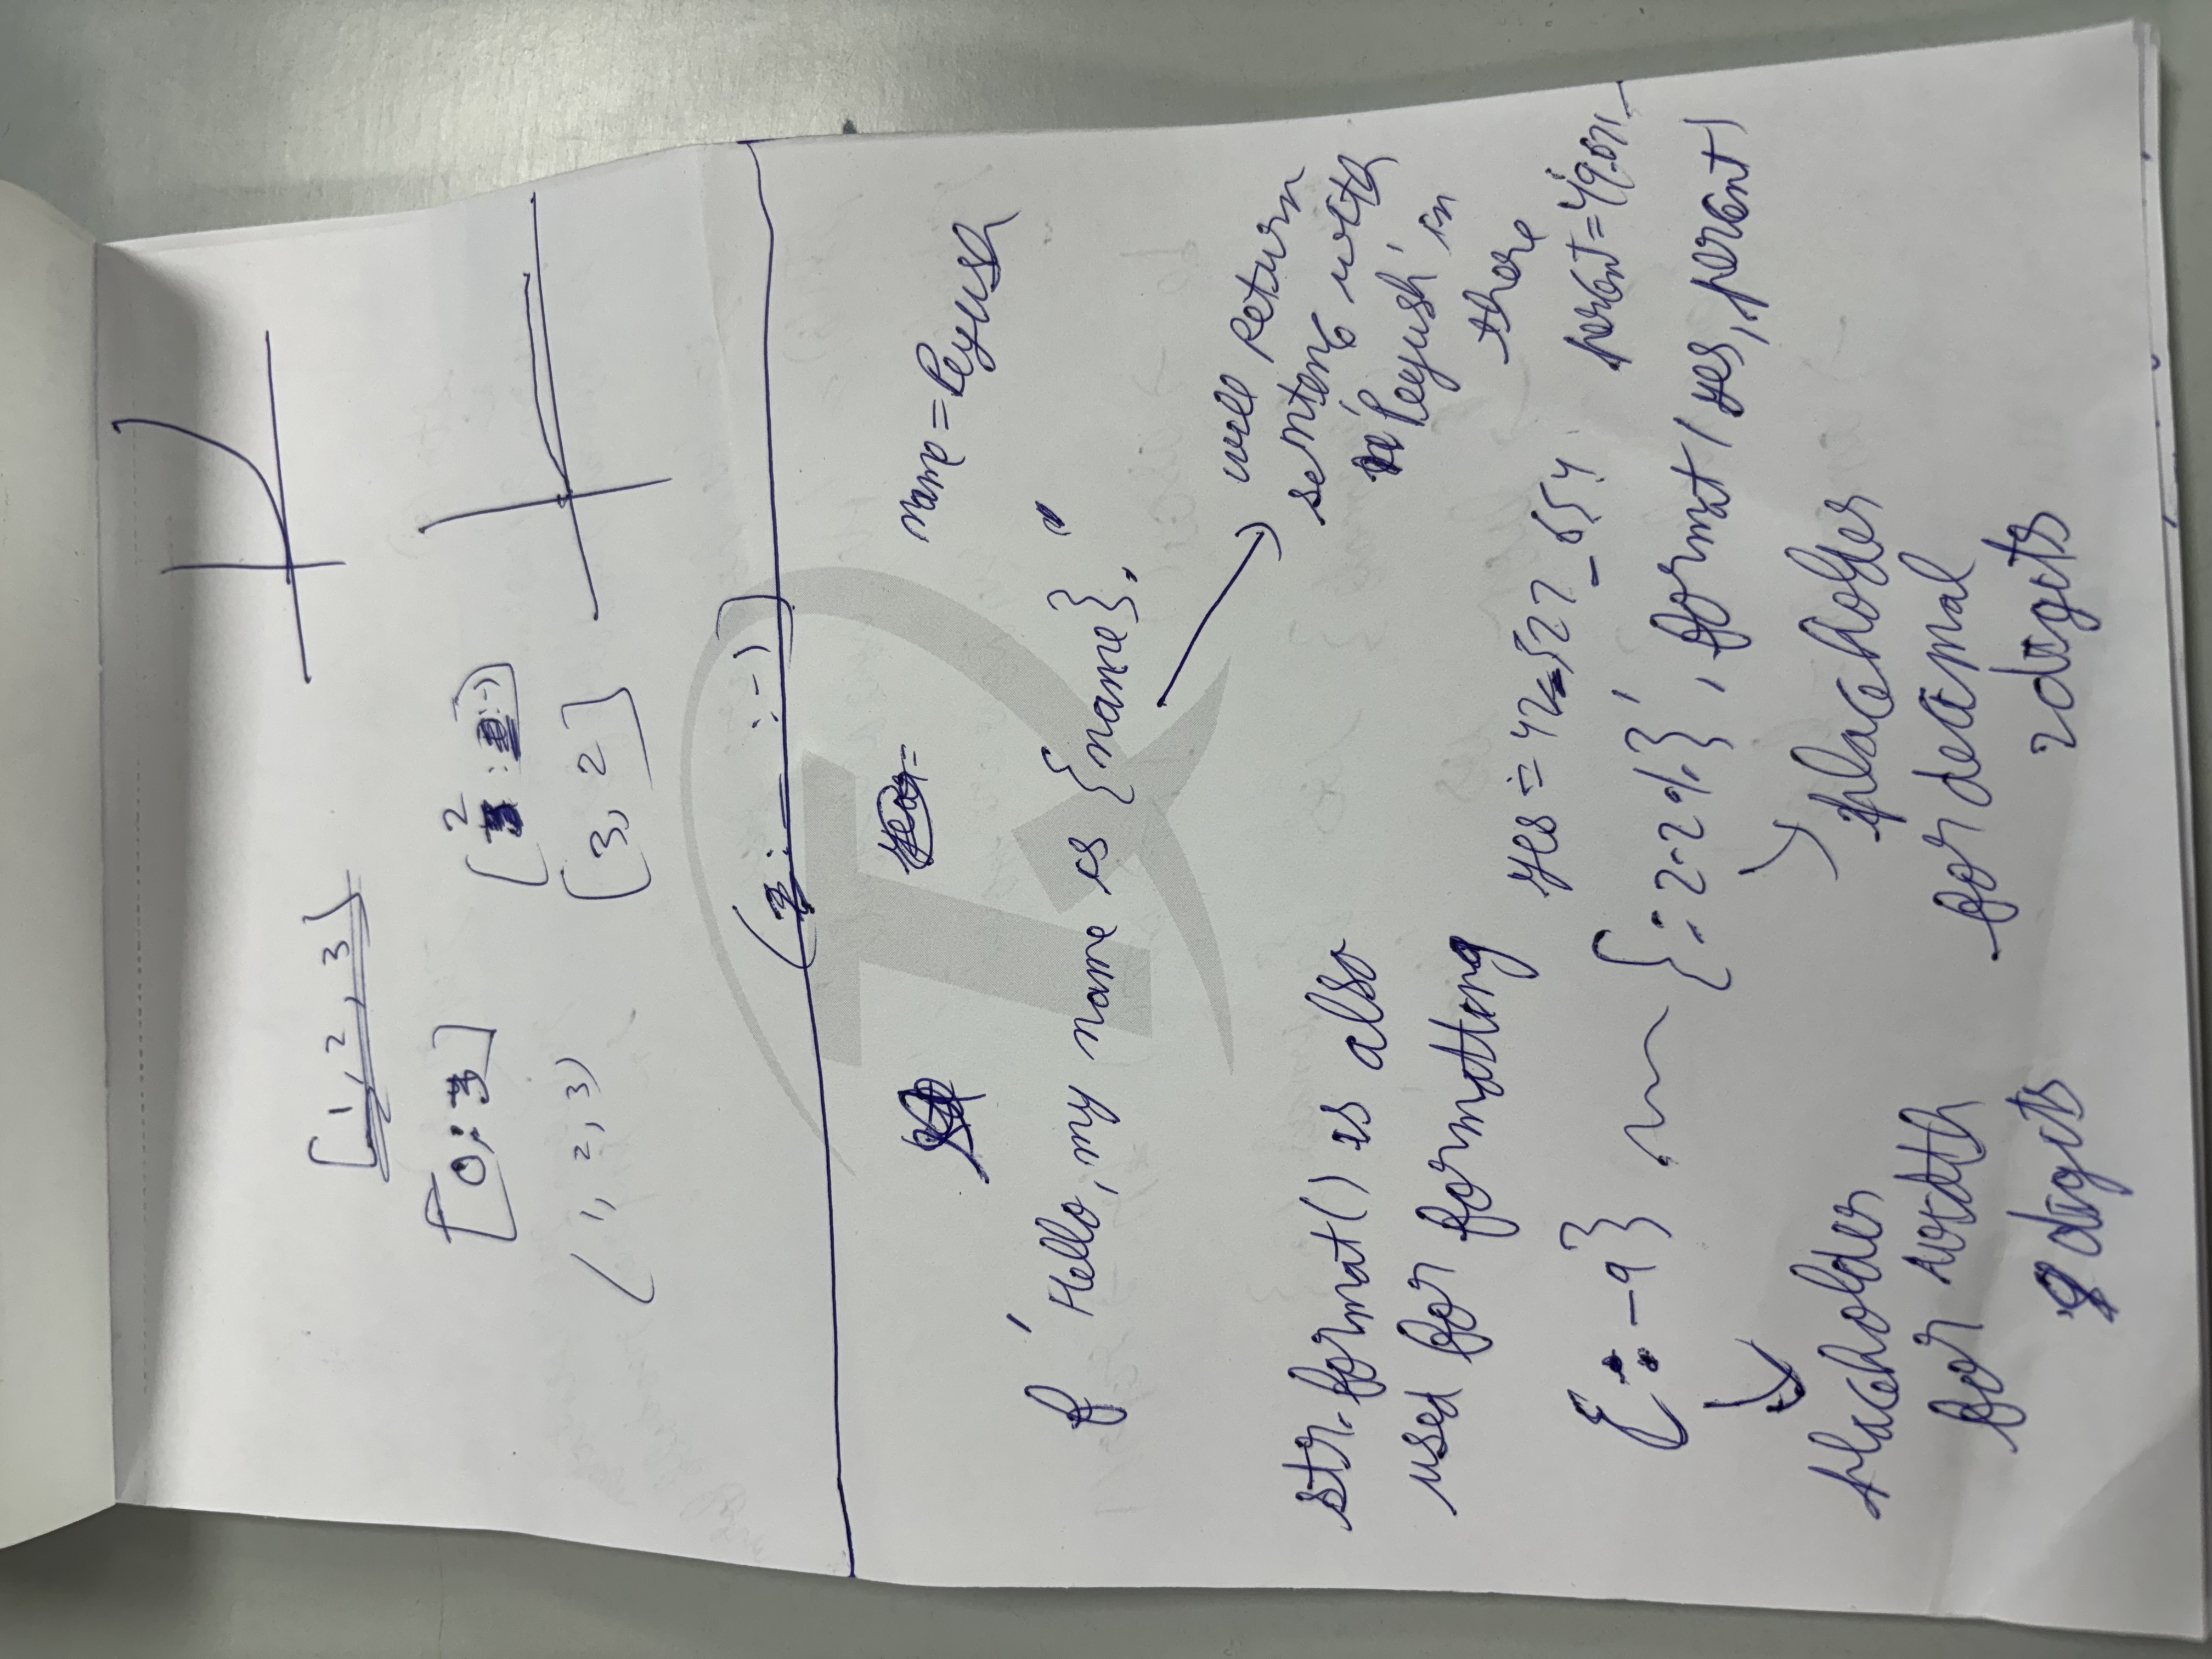 [1, 2, 3]
[0:3]
2
: :-1)
(1, 2, 3)
[3, 2]
: _ :-1]
name = Peyush
f 'Hello, my name is {name}."
will return
sentence with
'Peyush' in
there
str.format() is also
used for formatting
yes = 42_527_654
percent = 49.671
{:-9} {:2.2%}', format(yes, percent)
placeholder
for width
9 digits
placeholder
for decimal
2 digits